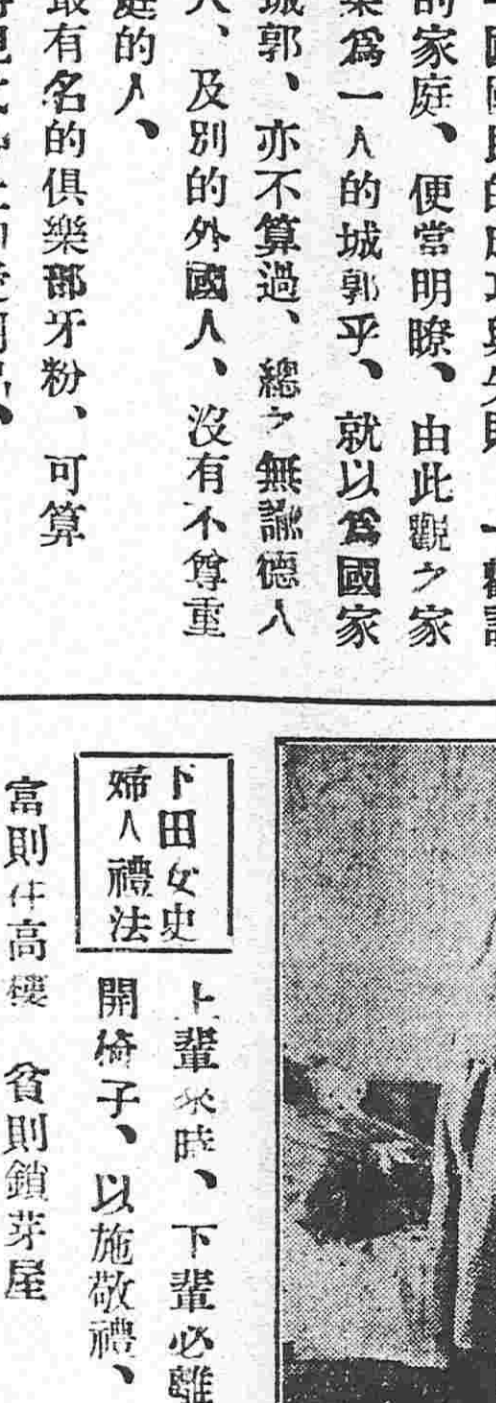 的家庭、便當明瞭、由此觀之家
爲一人的城郭乎、就以爲國家
城郭、亦不算過、總之無論德人
人、及別的外國人、沒有不尊重
庭的人、
最有名的俱樂部牙粉、可算
下田女史
婦人禮法
上輩來時、下輩必離
開椅子、以施敬禮、
富則住高樓 貧則鎖芽屋